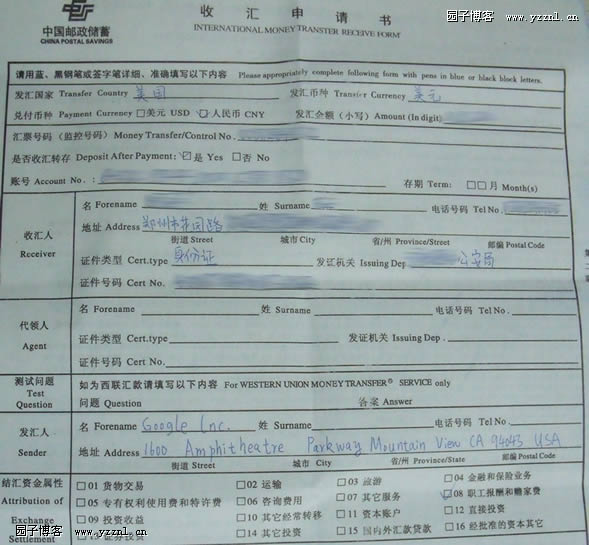 园子博客 www.yzznl.cn
中国邮政储蓄
CHINA POSTAL SAVINGS
收 汇 申 请 书
INTERNATIONAL MONEY TRANSFER RECEIVE FORM
请用蓝、黑钢笔或签字笔详细、准确填写以下内容 Please appropriately complete following form with pens in blue or black block letters.
发汇国家 Transfer Country 美国 发汇币种 Transfer Currency 美元
兑付币种 Payment Currency □美元 USD ☑人民币 CNY 发汇金额（小写）Amount (In digit)
汇票号码（监控号码）Money Transfer/Control No.
是否收汇转存 Deposit After Payment: ☑是 Yes □否 No
账号 Account No.: 存期 Term: □□月 Month(s)
收汇人 Receiver
名 Forename 姓 Surname 电话号码 Tel No.
地址 Address 郑州市花园路
街道 Street 城市 City 省/州 Province/Street 邮编 Postal Code
证件类型 Cert.type 身份证 发证机关 Issuing Dep 公安局
证件号码 Cert No.
代领人 Agent
名 Forename 姓 Surname 电话号码 Tel No.
证件类型 Cert.type 发证机关 Issuing Dep.
证件号码 Cert No.
测试问题 Test Question
如为西联汇款请填写以下内容 For WESTERN UNION MONEY TRANSFER® SERVICE only
问题 Question 答案 Answer
发汇人 Sender
名 Forename Google Inc. 姓 Surname 电话号码 Tel No.
地址 Address 1600 Amphitheatre Parkway Mountain View CA 94043 USA
街道 Street 城市 City 省/州 Province/State 邮编 Postal Code
结汇资金属性 Attribution of Exchange Settlement
□01 货物交易 □02 运输 □03 旅游 □04 金融和保险业务
□05 专有权利使用费和特许费 □06 咨询费用 □07 其它服务 ☑08 职工报酬和赡家费
□09 投资收益 □10 其它经常转移 □11 资本账户 □12 直接投资
□13 证券投资 □14 其它投资 □15 国内外汇贷款 □16 经批准的资本其它
园子博客
www.yzznl.cn
园子博客
www.yzznl.cn